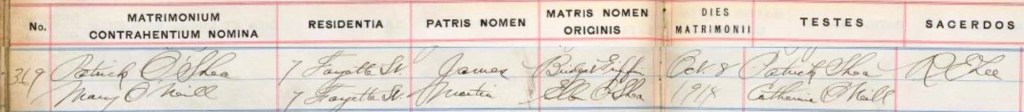 No. MATRIMONIUM CONTRAHENTIUM NOMINA RESIDENTIA PATRIS NOMEN MATRIS NOMEN ORIGINIS DIES MATRIMONII TESTES SACERDOS
369 Patrick O'Shea 7 Fayette St. James Bridget Oct. 8 Patrick Shea R E Lee
Mary O'Neill 7 Fayette St. Martin Ellen O'Shea 1918 Catherine O'Neill